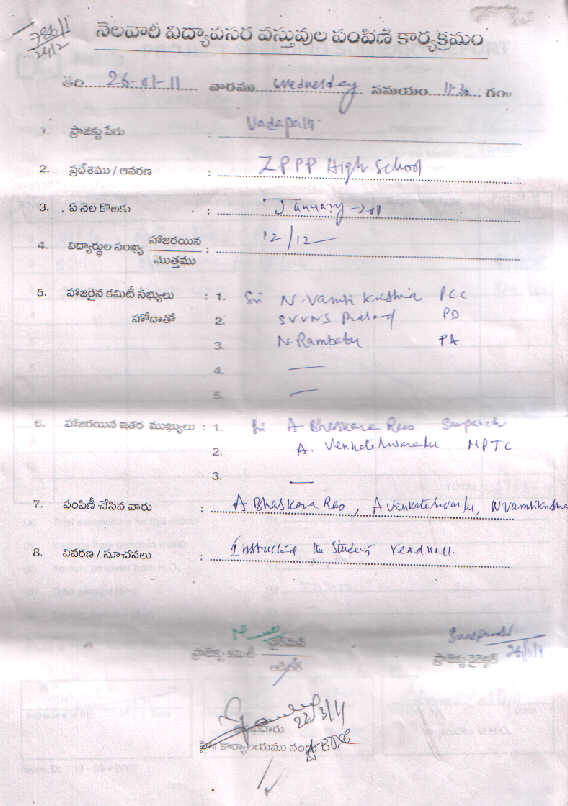 నెలవారీ విద్యాపసర వస్తువుల పంపిణి కార్యక్రమం
తేది 26-01-11 వారము Wednesday సమయం గం॥
1. ప్రాజెక్టు పేరు : Vadapally
2. ప్రదేశము / ఆవరణ : ZPPP High School
3. ఏ నెల కొఱకు : January
4. విద్యార్థుల సంఖ్య హాజరయిన / మొత్తము : 12/12
5. హాజరైన కమిటీ సభ్యులు : 1. Sri N. Vamsi Krishna PCC
హోదాతో 2. SVVNS Prasad PD
3. N. Rambabu PA
4. —
5. —
6. హాజరయిన ఇతర ముఖ్యులు : 1. Sri A Bhaskara Rao Sarpanch
2. A. Venkateswarulu MPTC
3. —
7. పంపిణీ చేసిన వారు : A Bhaskara Rao, A Venkateswarlu, N Vamsikrishna
8. వివరణ / సూచనలు : the student read well.
ప్రాజెక్టు కమిటీ ఛైర్మన్
ప్రాజెక్టు డైరెక్టర్ 26/1/11
22/3/11